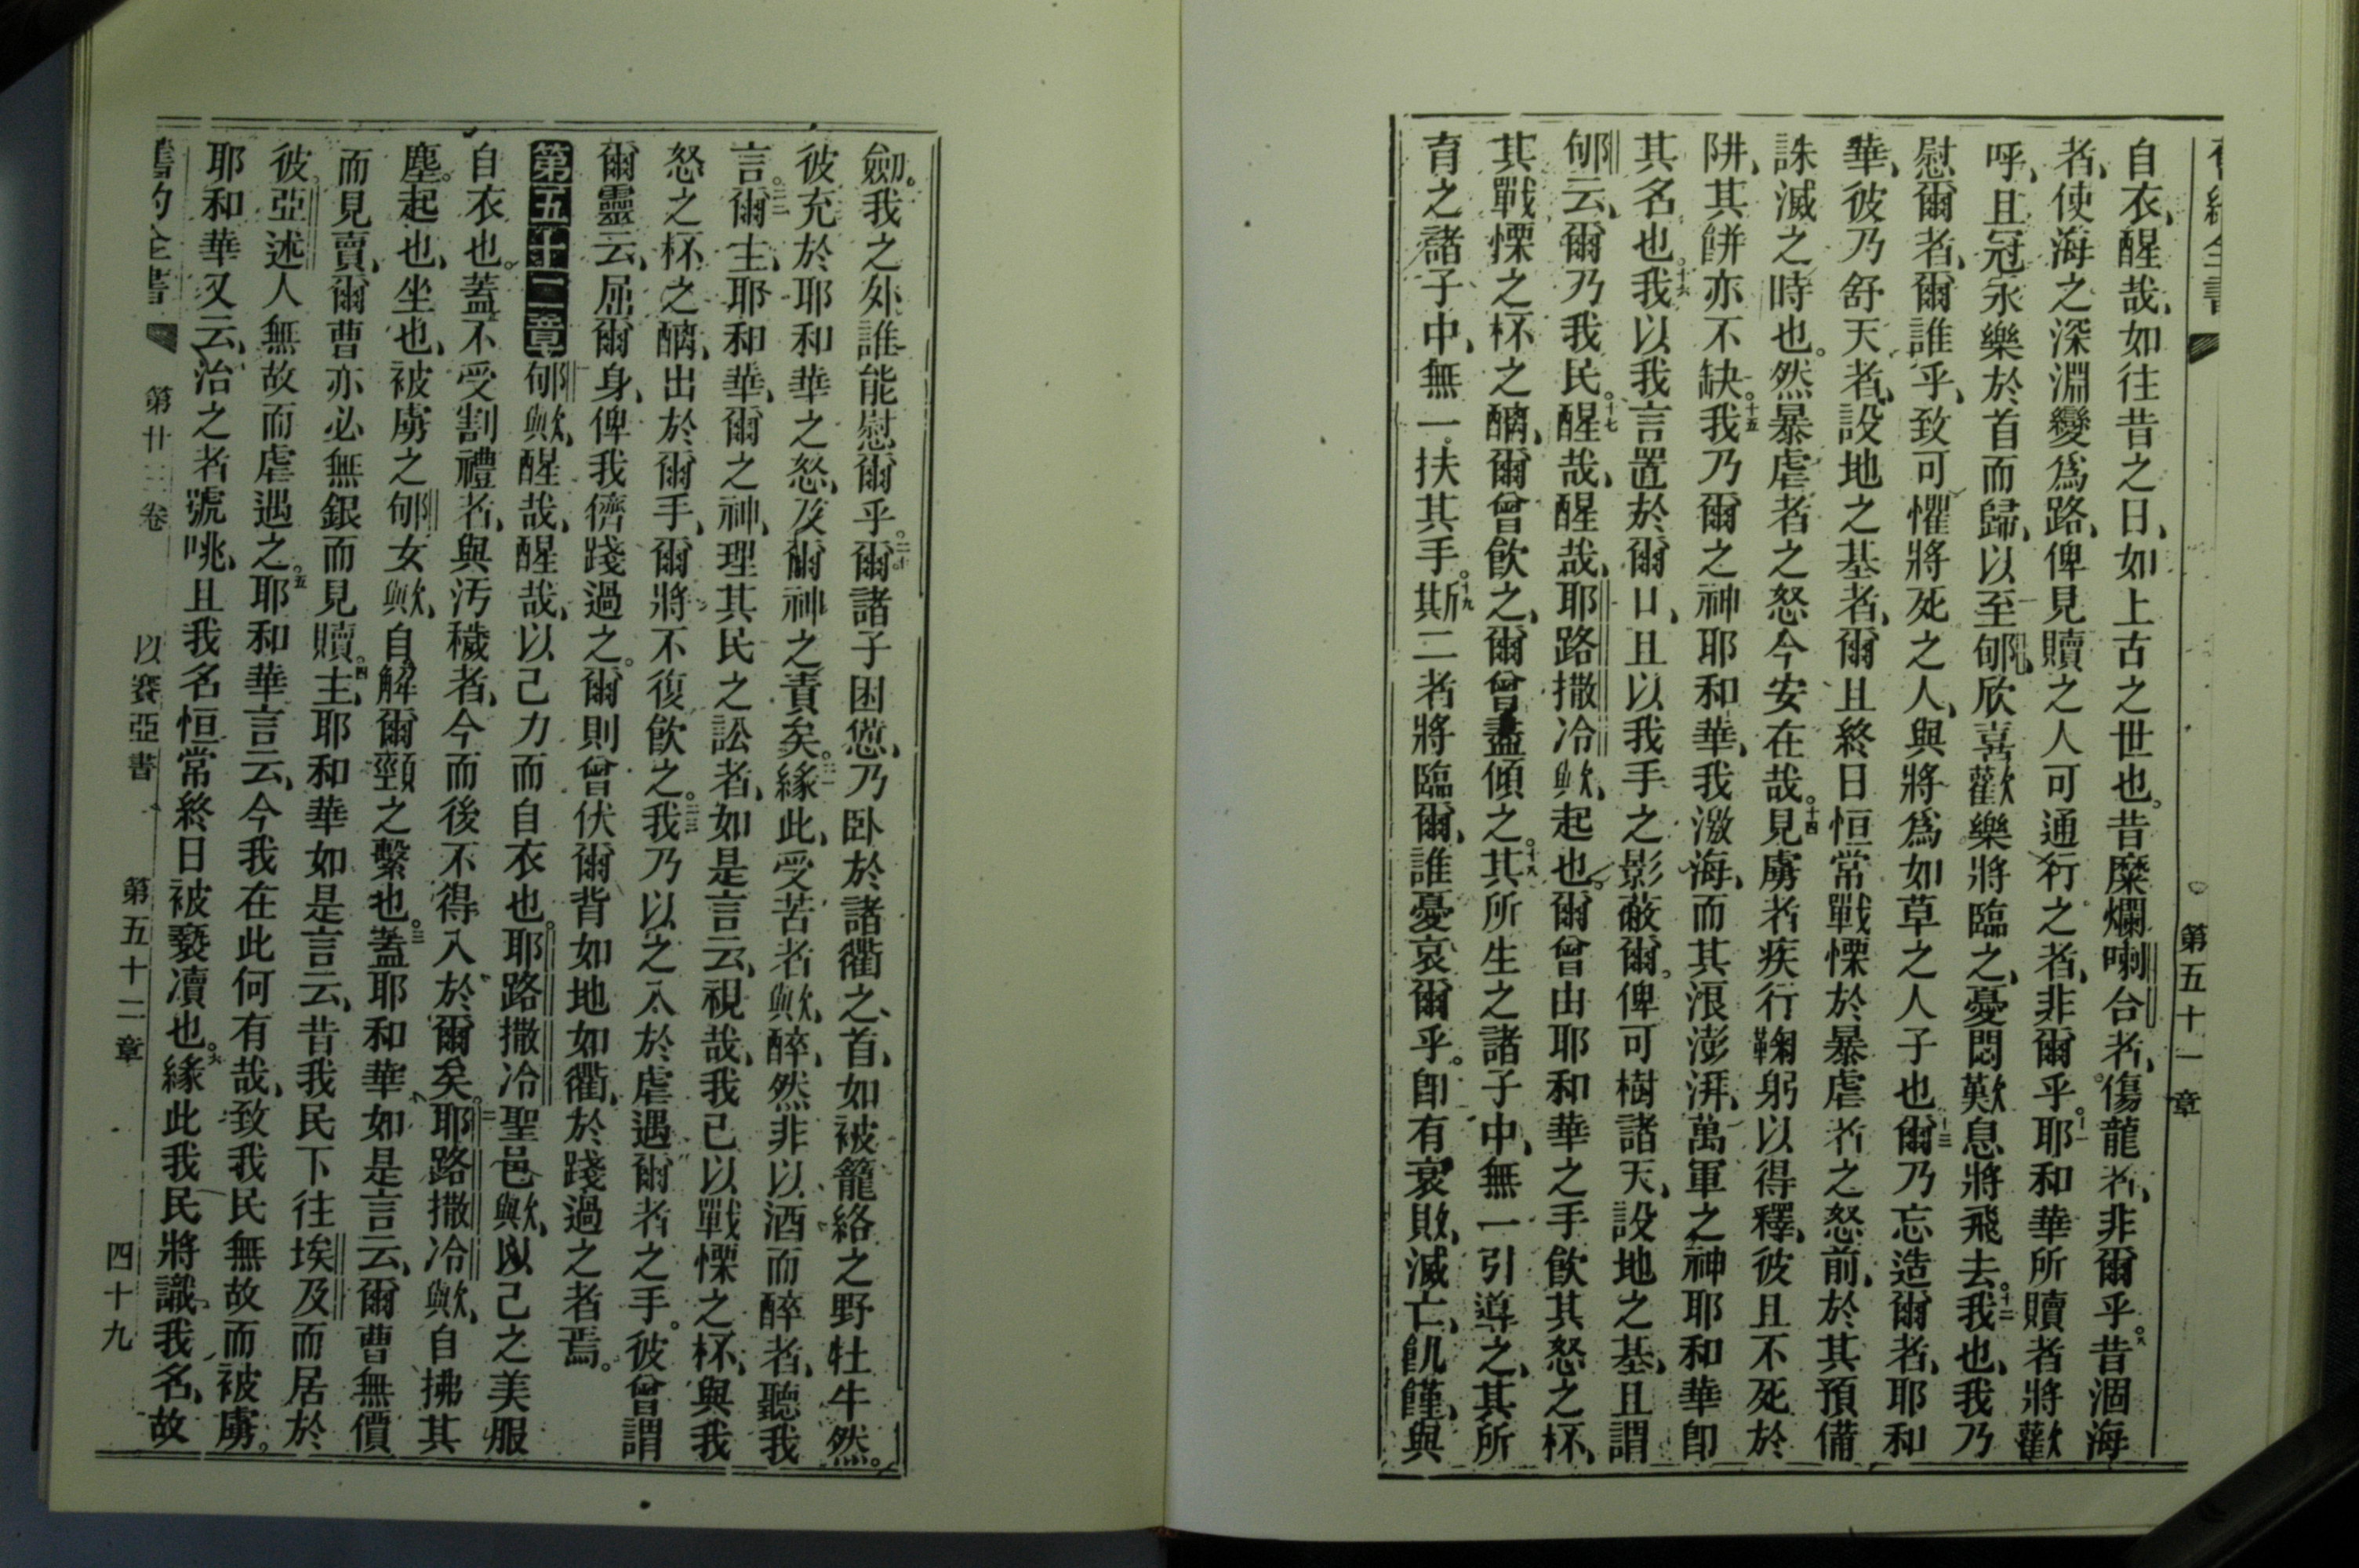 第五十一章
自衣、醒哉、如往昔之日、如上古之世也。昔糜爛喇合者、傷龍者、非爾乎。十昔涸海
者、使海之深淵變爲路、俾見贖之人可通行之者、非爾乎。十一耶和華所贖者將歡
呼、且冠永樂於首而歸、以至郇、欣喜歡樂將臨之、憂悶歎息將飛去。十二我也、我乃
慰爾者、爾誰乎、致可懼將死之人、與將爲如草之人子也。十三爾乃忘造爾者、耶和
華、彼乃舒天者、設地之基者、爾且終日恒常戰慄於暴虐者之怒前、於其預備
誅滅之時也。然暴虐者之怒今安在哉。十四見虜者疾行鞠躬以得釋、彼且不死於
阱、其餅亦不缺。十五我乃爾之神耶和華、我激海、而其浪澎湃、萬軍之神耶和華即
其名也。十六我以我言置於爾口、且以我手之影蔽爾。俾可樹諸天、設地之基、且謂
郇云、爾乃我民。十七醒哉、醒哉、耶路撒冷歟、起也。爾曾由耶和華之手飲其怒之杯、
其戰慄之杯之醨、爾曾飲之、爾曾盡傾之。十八其所生之諸子中、無一引導之、其所
育之諸子中、無一扶其手。十九斯二者將臨爾、誰憂哀爾乎。即有衰敗、滅亡、飢饉、與
劒。我之外誰能慰爾乎。二十爾諸子困憊、乃卧於諸衢之首、如被籠絡之野牡牛然。
彼充於耶和華之怒、及爾神之責矣。二一緣此、受苦者歟、醉、然非以酒而醉者、聽我
言。二二爾主、耶和華、爾之神、理其民之訟者、如是言云、視哉、我已以戰慄之杯、與我
怒之杯之醨、出於爾手、爾將不復飲之。二三我乃以之入於虐遇爾者之手。彼曾謂
爾靈云、屈爾身、俾我儕踐過之。爾則曾伏爾背如地如衢、於踐過之者焉。
第五十二章 郇歟、醒哉、醒哉、以己力而自衣也。耶路撒冷聖邑歟、以己之美服
自衣也。蓋不受割禮者、與汚穢者、今而後不得入於爾矣。二耶路撒冷歟、自拂其
塵。起也、坐也、被虜之郇女歟、自解爾頸之繫也。三蓋耶和華如是言云、爾曹無價
而見賣、爾曹亦必無銀而見贖。四主、耶和華如是言云、昔我民下往埃及而居於
彼。亞述人無故而虐遇之。五耶和華言云、今我在此何有哉、致我民無故而被虜。
耶和華又云、治之者號咷、且我名恒常終日被褻凟也。六緣此我民將識我名、故
舊約全書 第廿三卷 以賽亞書 第五十二章 四十九